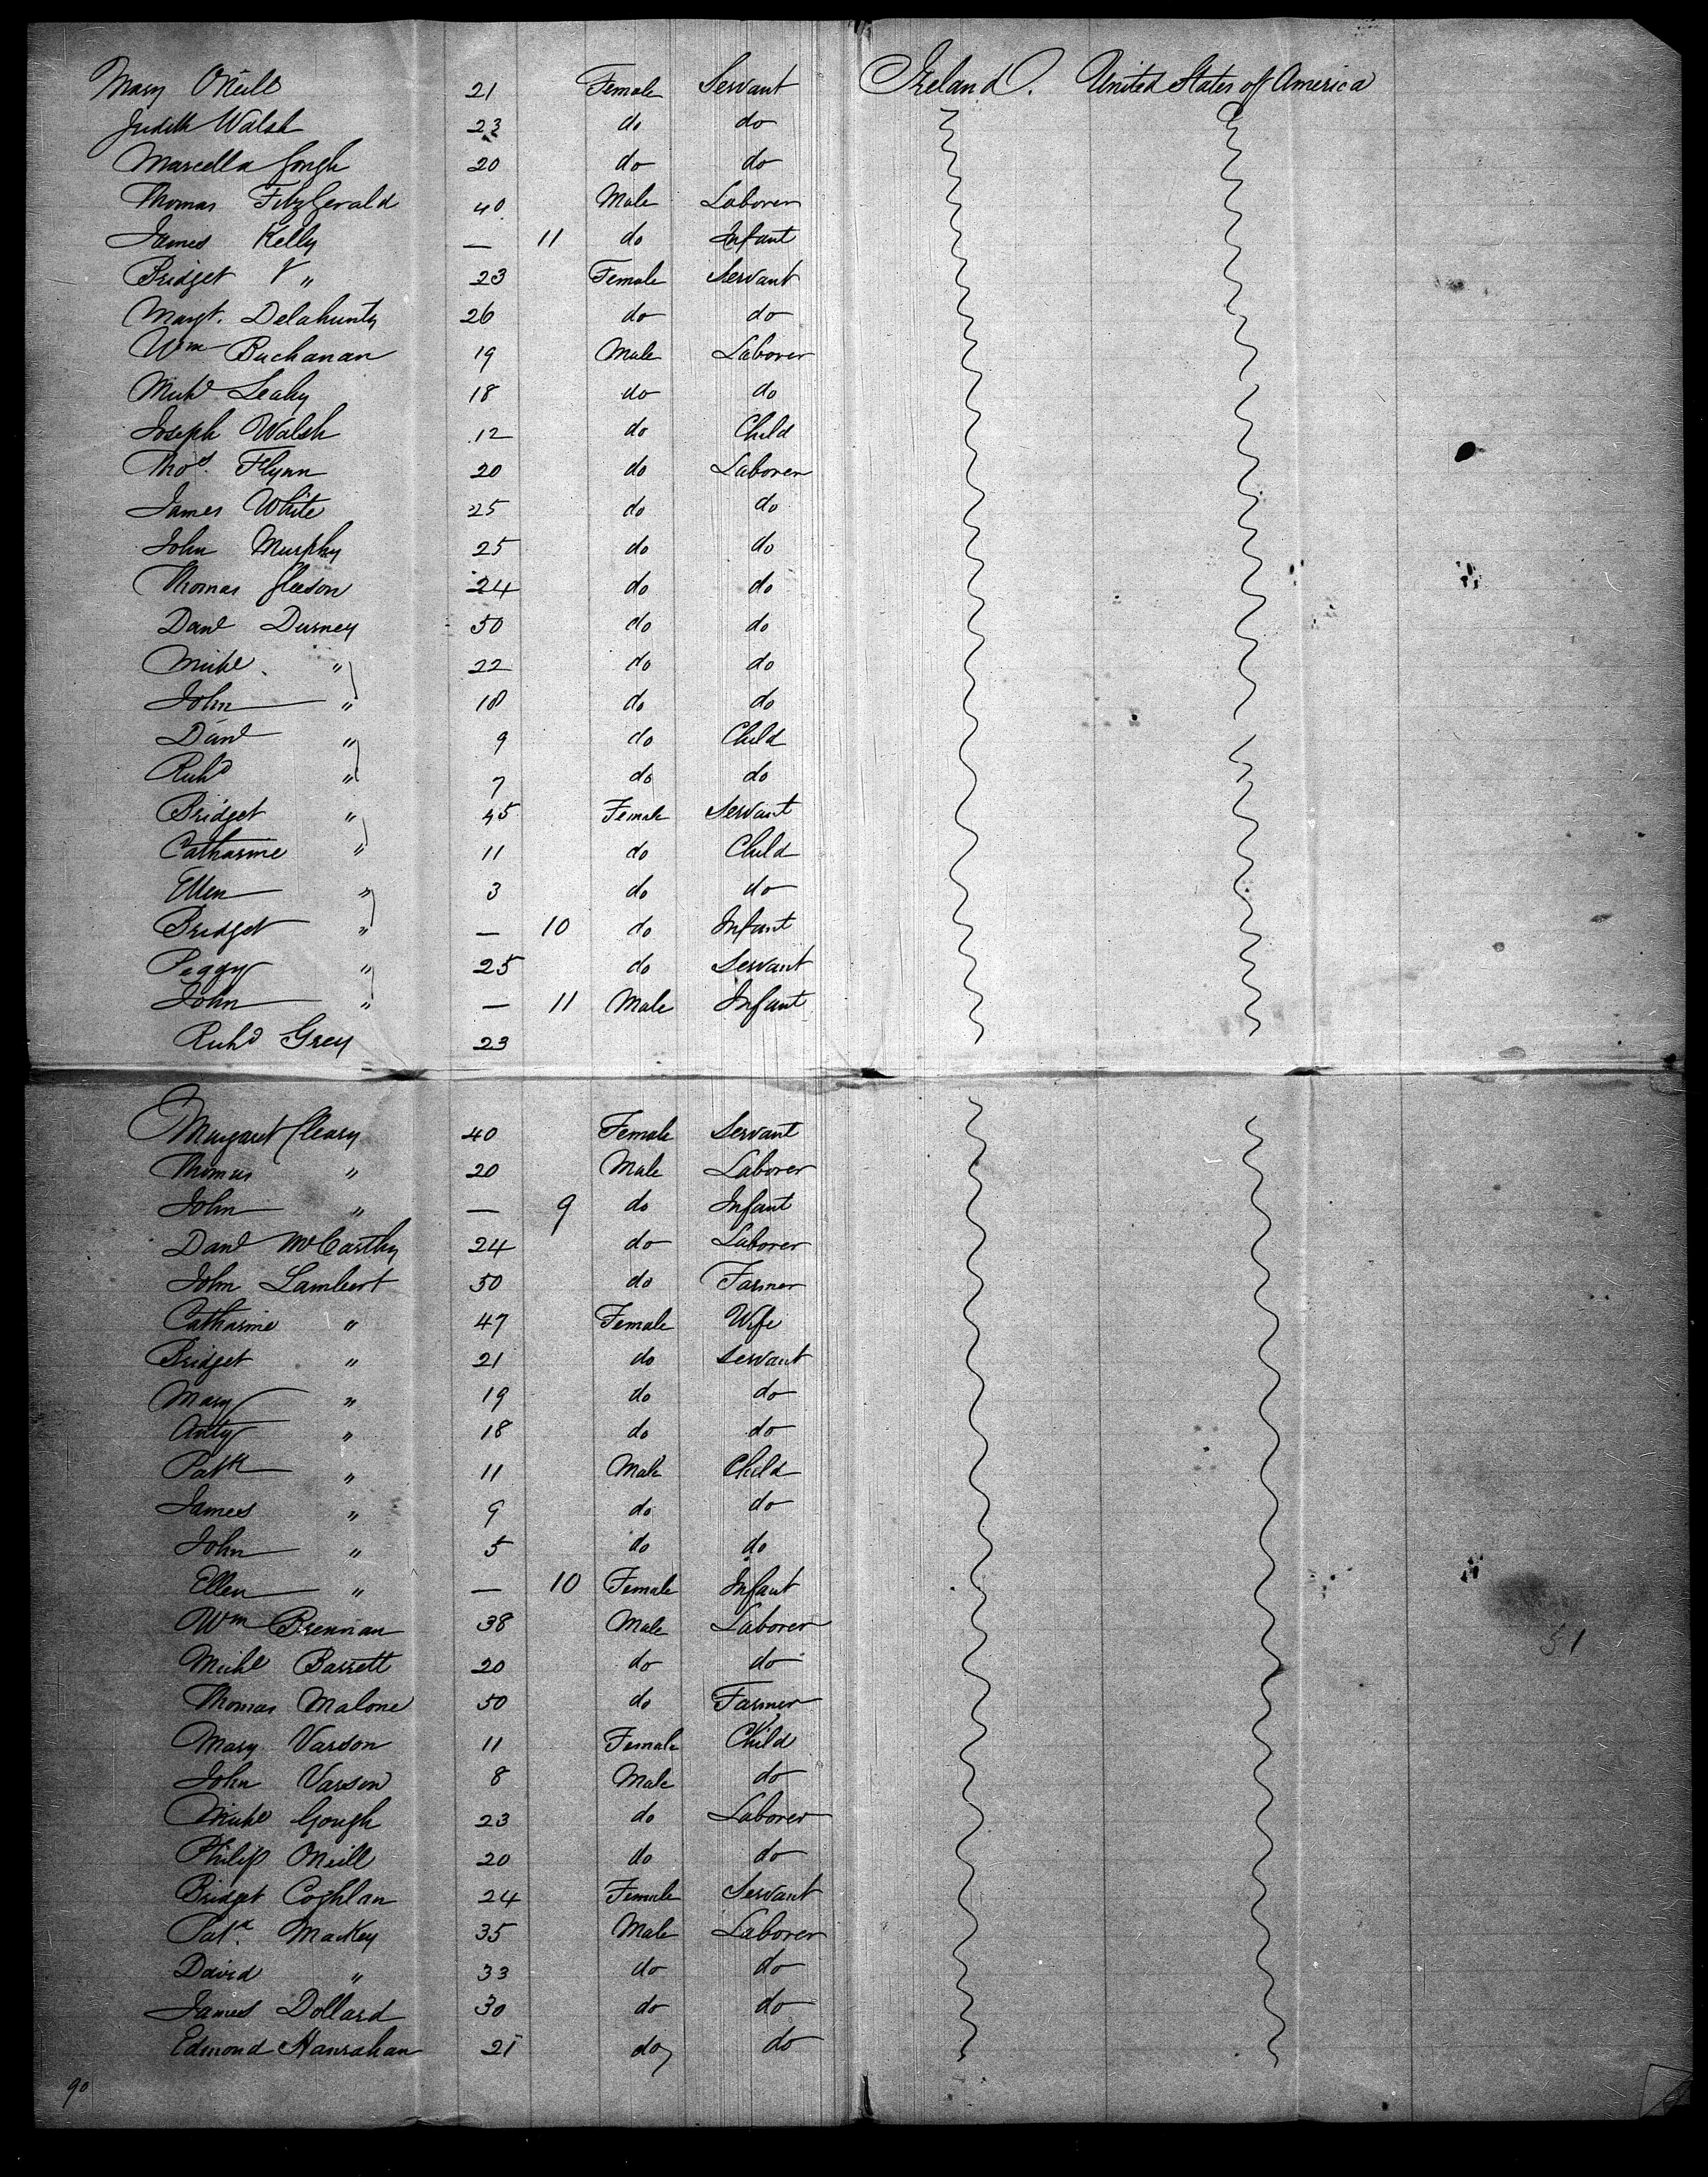 Mary ONeill 21 Female Servant Ireland. United States of America
Judith Walsh 23 do do
Marcella Gough 20 do do
Thomas FitzGerald 40 Male Laborer
James Kelly — 11 do Infant
Bridget " 23 Female Servant
Margt. Delahunty 26 do do
Wm Buchanan 19 Male Laborer
Michl Leahy 18 do do
Joseph Walsh 12 do Child
Thos. Flynn 20 do Laborer
James White 25 do do
John Murphy 25 do do
Thomas Gleeson 24 do do
Danl Durney 50 do do
Michl " 22 do do
John " 18 do do
Danl " 9 do Child
Richd " 7 do do
Bridget " 45 Female Servant
Catharine " 11 do Child
Ellen " 3 do do
Bridget " — 10 do Infant
Peggy " 25 do Servant
John " — 11 Male Infant
Richd Grey 23
Margaret Cleary 40 Female Servant
Thomas " 20 Male Laborer
John " — 9 do Infant
Danl McCarthy 24 do Laborer
John Lambert 50 do Farmer
Catharine " 47 Female Wife
Bridget " 21 do Servant
Mary " 19 do do
Anty " 18 do do
Patk " 11 Male Child
James " 9 do do
John " 5 do do
Ellen " — 10 Female Infant
Wm Brennan 38 Male Laborer
51
Michl Barrett 20 do do
Thomas Malone 50 do Farmer
Mary Varson 11 Female Child
John Varson 8 Male do
Michl Gough 23 do Laborer
Philip ONeill 20 do do
Bridget Coghlan 24 Female Servant
Patk. Mackey 35 Male Laborer
David " 33 do do
James Dollard 30 do do
Edmond Hanrahan 21 do do
90